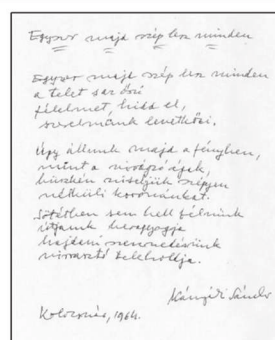 Egyszer majd szép lesz minden
Egyszer majd szép lesz minden
a telet s az őszi
félelmet, hidd el,
szerelmünk levetkőzi.
Úgy állunk majd a fényben,
mint a virágzó ágak,
büszkén viseljük szépen
nélküli koronánkat.
Sötétben sem kell félnünk
útjaink beragyogja
hajdani szenvedésünk
virrasztó teleholdja.
Kányádi Sándor
Kolozsvár, 1964.